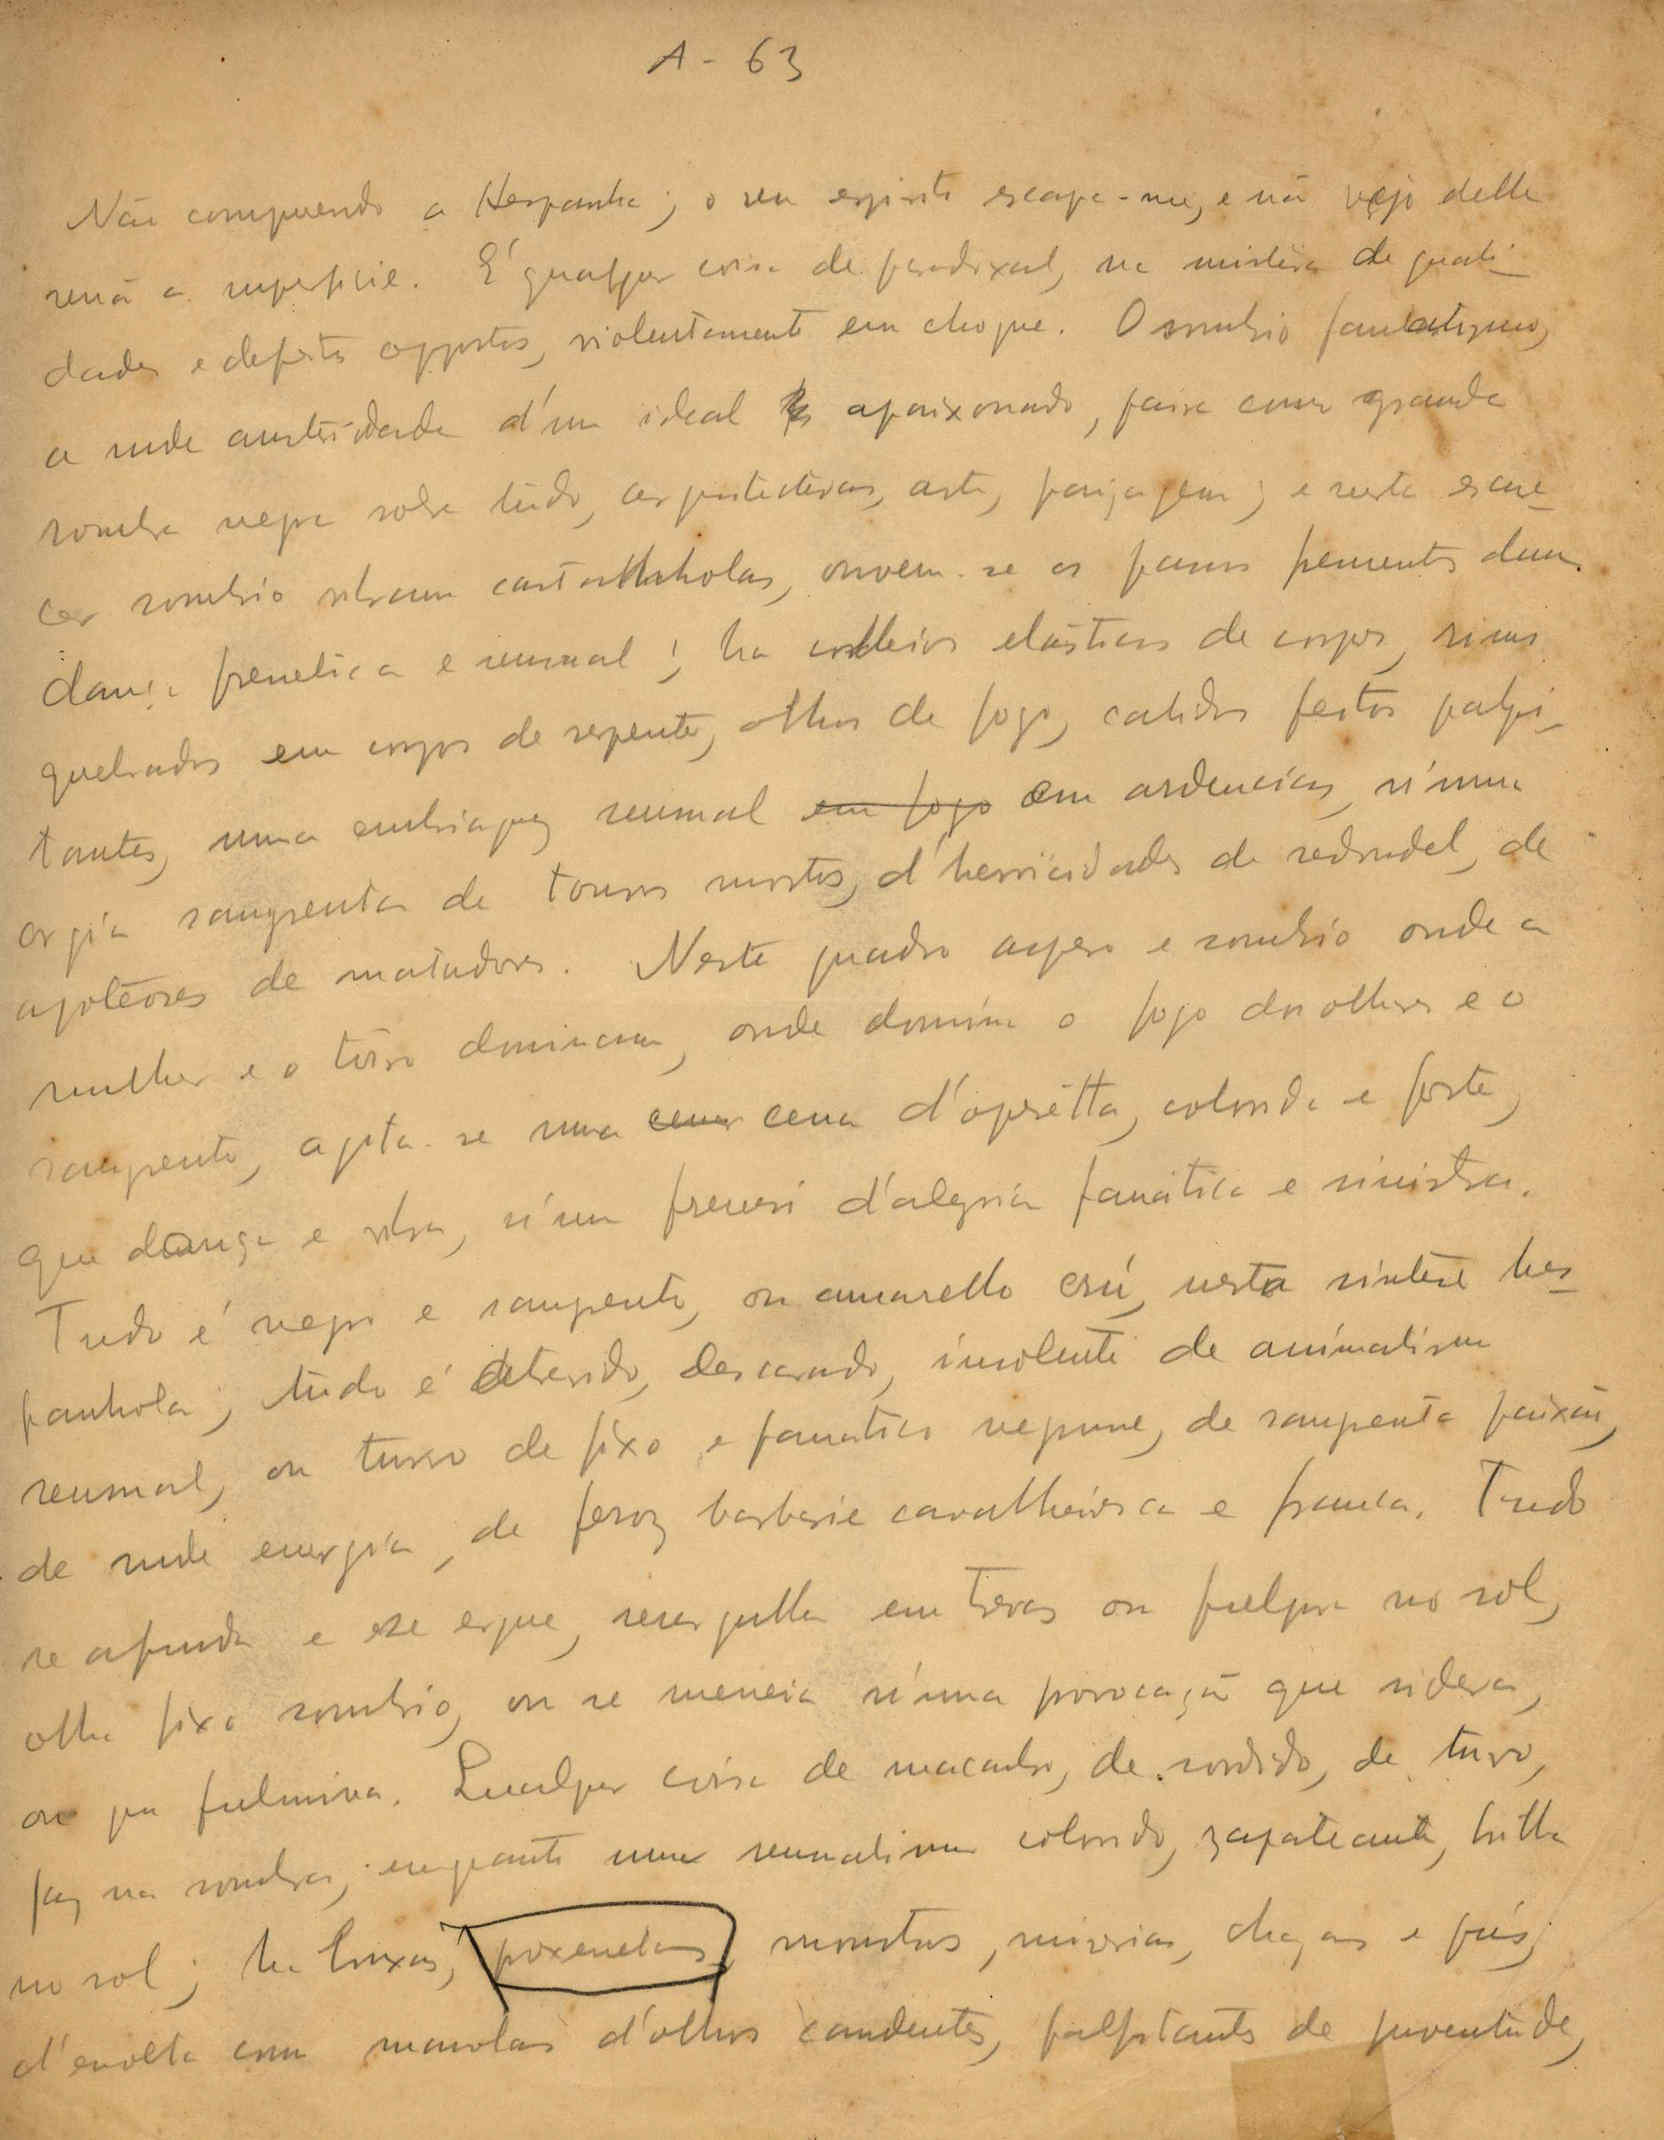 A - 63
Não comprendo a Hespanha; o seu espirito escapa-me, e não vejo delle
senão a superficie. É qualquer coisa de paradoxal, na mistura de quali-
dades e defeitos oppostos, violentamente em choque. O sombrio fanatismo,
a rude austeridade d'um ideal apaixonado, paira como grande
sombra negra sobre tudo, arquitecturas, arte, paisagem; e neste escure-
cer sombrio vibram castanholas, ouvem-se os passos frementes duma
dança frenetica e sensual; ha colleios elasticos de corpos, rims
quebrados em corpos de serpente, olhos de fogo, calidos peitos palpi-
tantes, numa embriaguez sensual em fogo em ardencias, n'uma
orgia sangrenta de touros mortos, d'heroicidades de redondel, de
apoteoses de matadores. Neste quadro aspero e sombrio onde a
mulher e o toiro dominam, onde domina o fogo dos olhos e o
sangrento, agita-se uma cena cena d'operetta, colorida e forte,
que dança e vibra, n'um frenesi d'alegria fanatica e sinistra.
Tudo é negro e sangrento, ou amarello crú, nesta sintese hes-
panhola; tudo é atrevido, descarado, insolente de animalismo
sensual, ou turvo de fixo e fanatico negrume, de sangrenta paixão,
de rude energia, de feroz barbarie cavalheiresca e franca. Tudo
se afunda e se ergue, mergulha em trevas ou fulgura no sol,
olha fixo sombrio, ou se meneia n'uma provocação que sidera,
ou que fulmina. Qualquer coisa de macabro, de sordido, de turvo,
faz na sombra, enquanto um sensualismo colorido, zapateante, brilha
no sol; ha bruxas, proxenetas, monstros, miserias, chagas e pús,
d'envolta com manolas d'olhos candentes, palpitantes de juventude,